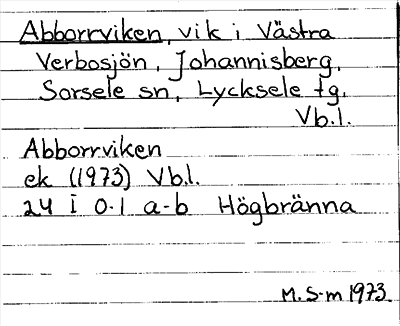 Abborrviken, vik i Västra
Verbosjön, Johannisberg,
Sorsele sn, Lycksele tg.
Vb.l.
Abborrviken
ek (1973) Vb.l.
24 I 0-1 a-b Högbränna
M. S-m 1973